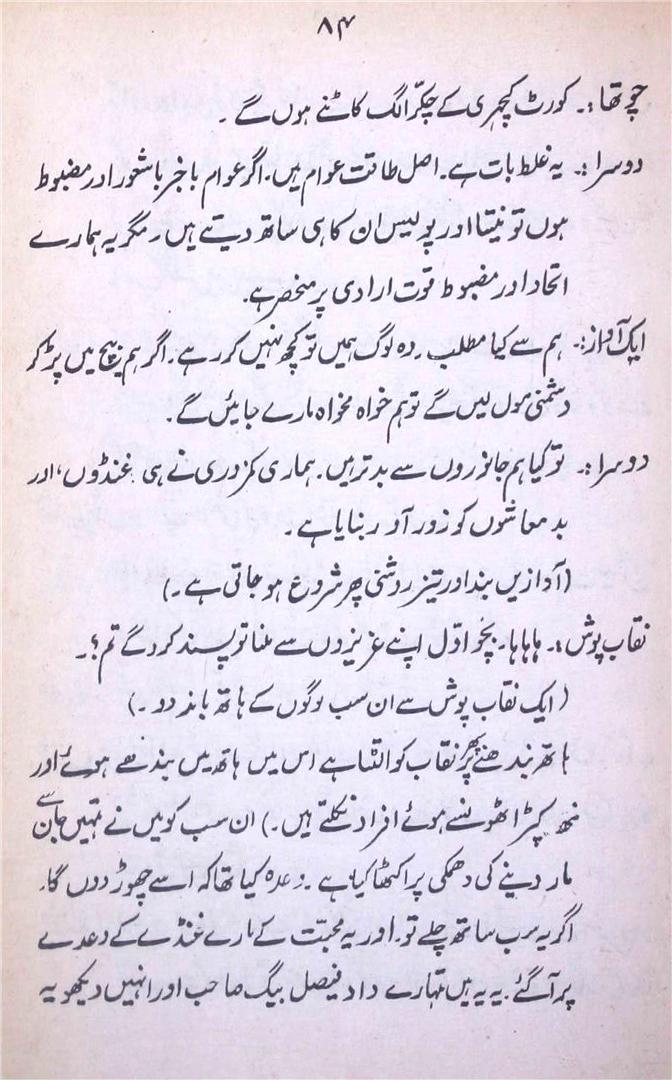 ۸۴
چوتھا:۔ کورٹ کچہری کے چکّر الگ کاٹنے ہوں گے ۔
دوسرا:۔ یہ غلط بات ہے۔ اصل طاقت عوام ہیں۔ اگر عوام باخبر باشعور اور مضبوط
ہوں تو نیتا اور پولیس ان کا ہی ساتھ دیتے ہیں۔ مگر یہ ہمارے
اتحاد اور مضبوط قوت ارادی پر منحصر ہے۔
ایک آواز:۔ ہم سے کیا مطلب ۔ وہ لوگ ہمیں تو کچھ نہیں کر رہے ۔ اگر ہم بیچ میں پڑ کر
دشمنی مول لیں گے تو ہم خواہ مخواہ مارے جائیں گے ۔
دوسرا:۔ تو کیا ہم جانوروں سے بدتر ہیں۔ ہماری کمزوری نے ہی غنڈوں، اور
بدمعاشوں کو زور آور بنایا ہے ۔
(آوازیں بند اور تیز روشنی پھر شروع ہو جاتی ہے ۔)
نقاب پوش:۔ ہاہاہا۔ بچو اوّل اپنے عزیزوں سے ملنا تو پسند کرو گے تم؟۔
( ایک نقاب پوش سے ان سب لوگوں کے ہاتھ باند دو ۔)
ہاتھ بندھنے پر پھر نقاب کو الٹتا ہے اس میں ہاتھ میں بندھے ہوئے اور
منھ کپڑا ٹھونسے ہوئے افراد نکلتے ہیں۔) ان سب کو میں نے تمہیں جان سے
مار دینے کی دھمکی پر اکٹھا کیا ہے ۔ وعدہ کیا تھا کہ اسے چھوڑ دوں گا۔
اگر یہ سب ساتھ چلے تو۔ اور یہ محبت کے مارے غنڈے کے وعدے
پر آ گئے ۔ یہ یہ ہیں تمہارے داد فیصل بیگ صاحب اور انہیں دیکھو یہ